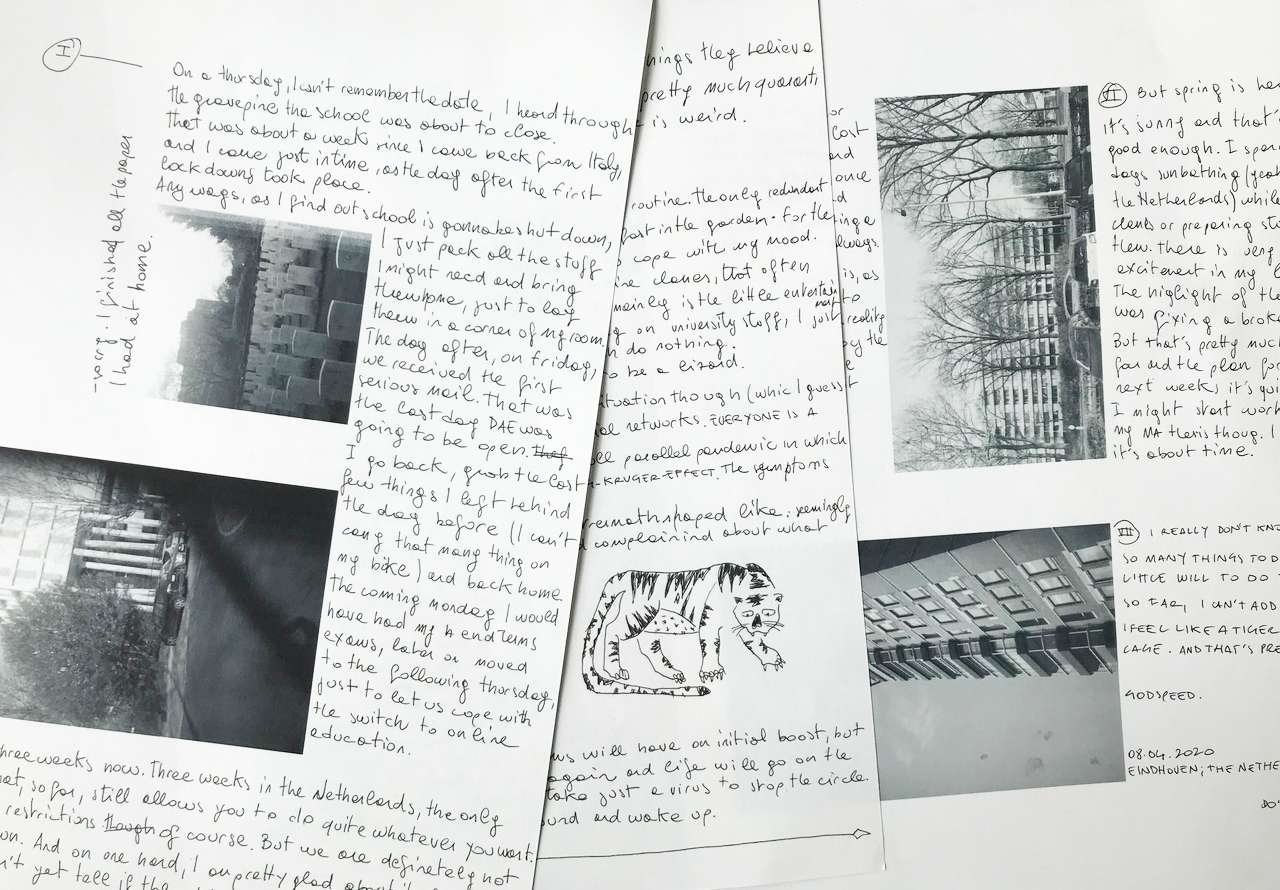 I
On a thursday, I can't remember the date, I heard through
the gravepine the school was about to close.
that was about a week since I came back from Italy,
and I came just in time, as the day after the first
lockdowns took place.
Any ways, as I find out school is gonna be shut down,
I just pack all the stuff
I might need and bring
them home, just to lay
them in a corner of my room.
The day after, on friday,
we received the first
serious mail. That was
the last day DAE was
going to be open.
I go back, grab the last
few things I left behind
the day before (I can't
carry that many thing on
my bike) and back home
the coming monday I would
have had my endterms
exams, later on moved
to the following thursday,
just to let us cope with
the switch to online
education.
- sorry. I finished all the paper
I had at home.
three weeks now. Three weeks in the Netherlands, the only
so far, still allows you to do quite whatever you want.
restrictions though of course. But we are definetely not
And on one hand, I am pretty glad about
yet tell if the
things they believe
pretty much quaranti
is weird.
routine. The only redundant
last in the garden. For the
cope with my mood.
clones, that often
mainly is the little entertainment
on university stuff, I just
do nothing.
to be a lizard.
situation though (whic I guess
networks. EVERYONE IS A
parallel pandemic in which
-KRUGER-EFFECT. The symptoms
shaped like: seemingly
complainind about what
will have an initial boost, but
again and life will go on the
take just a virus to stop the circle.
and wake up.
or
cost
and
once
d
always.
is, as
to
reality
by the
VI
But spring is her
it's sunny and that's
good enough. I spen
days sunbathing (yeah
the Netherlands) while
clones or preparing stu
them. There is very
excitement in my
The highlight of the
was fixing a broke
But that's pretty much
far and the plan for
next weeks it's qui
I might start work
my MA thesis thoug. I
it's about time.
VII
I REALLY DON'T KNO
SO MANY THINGS TO D
LITTLE WILL TO DO
SO FAR, I CAN'T ADD
I FEEL LIKE A TIGER
CAGE. AND THAT'S PRE
GODSPEED.
08.04.2020
EINDHOVEN, THE NETHE